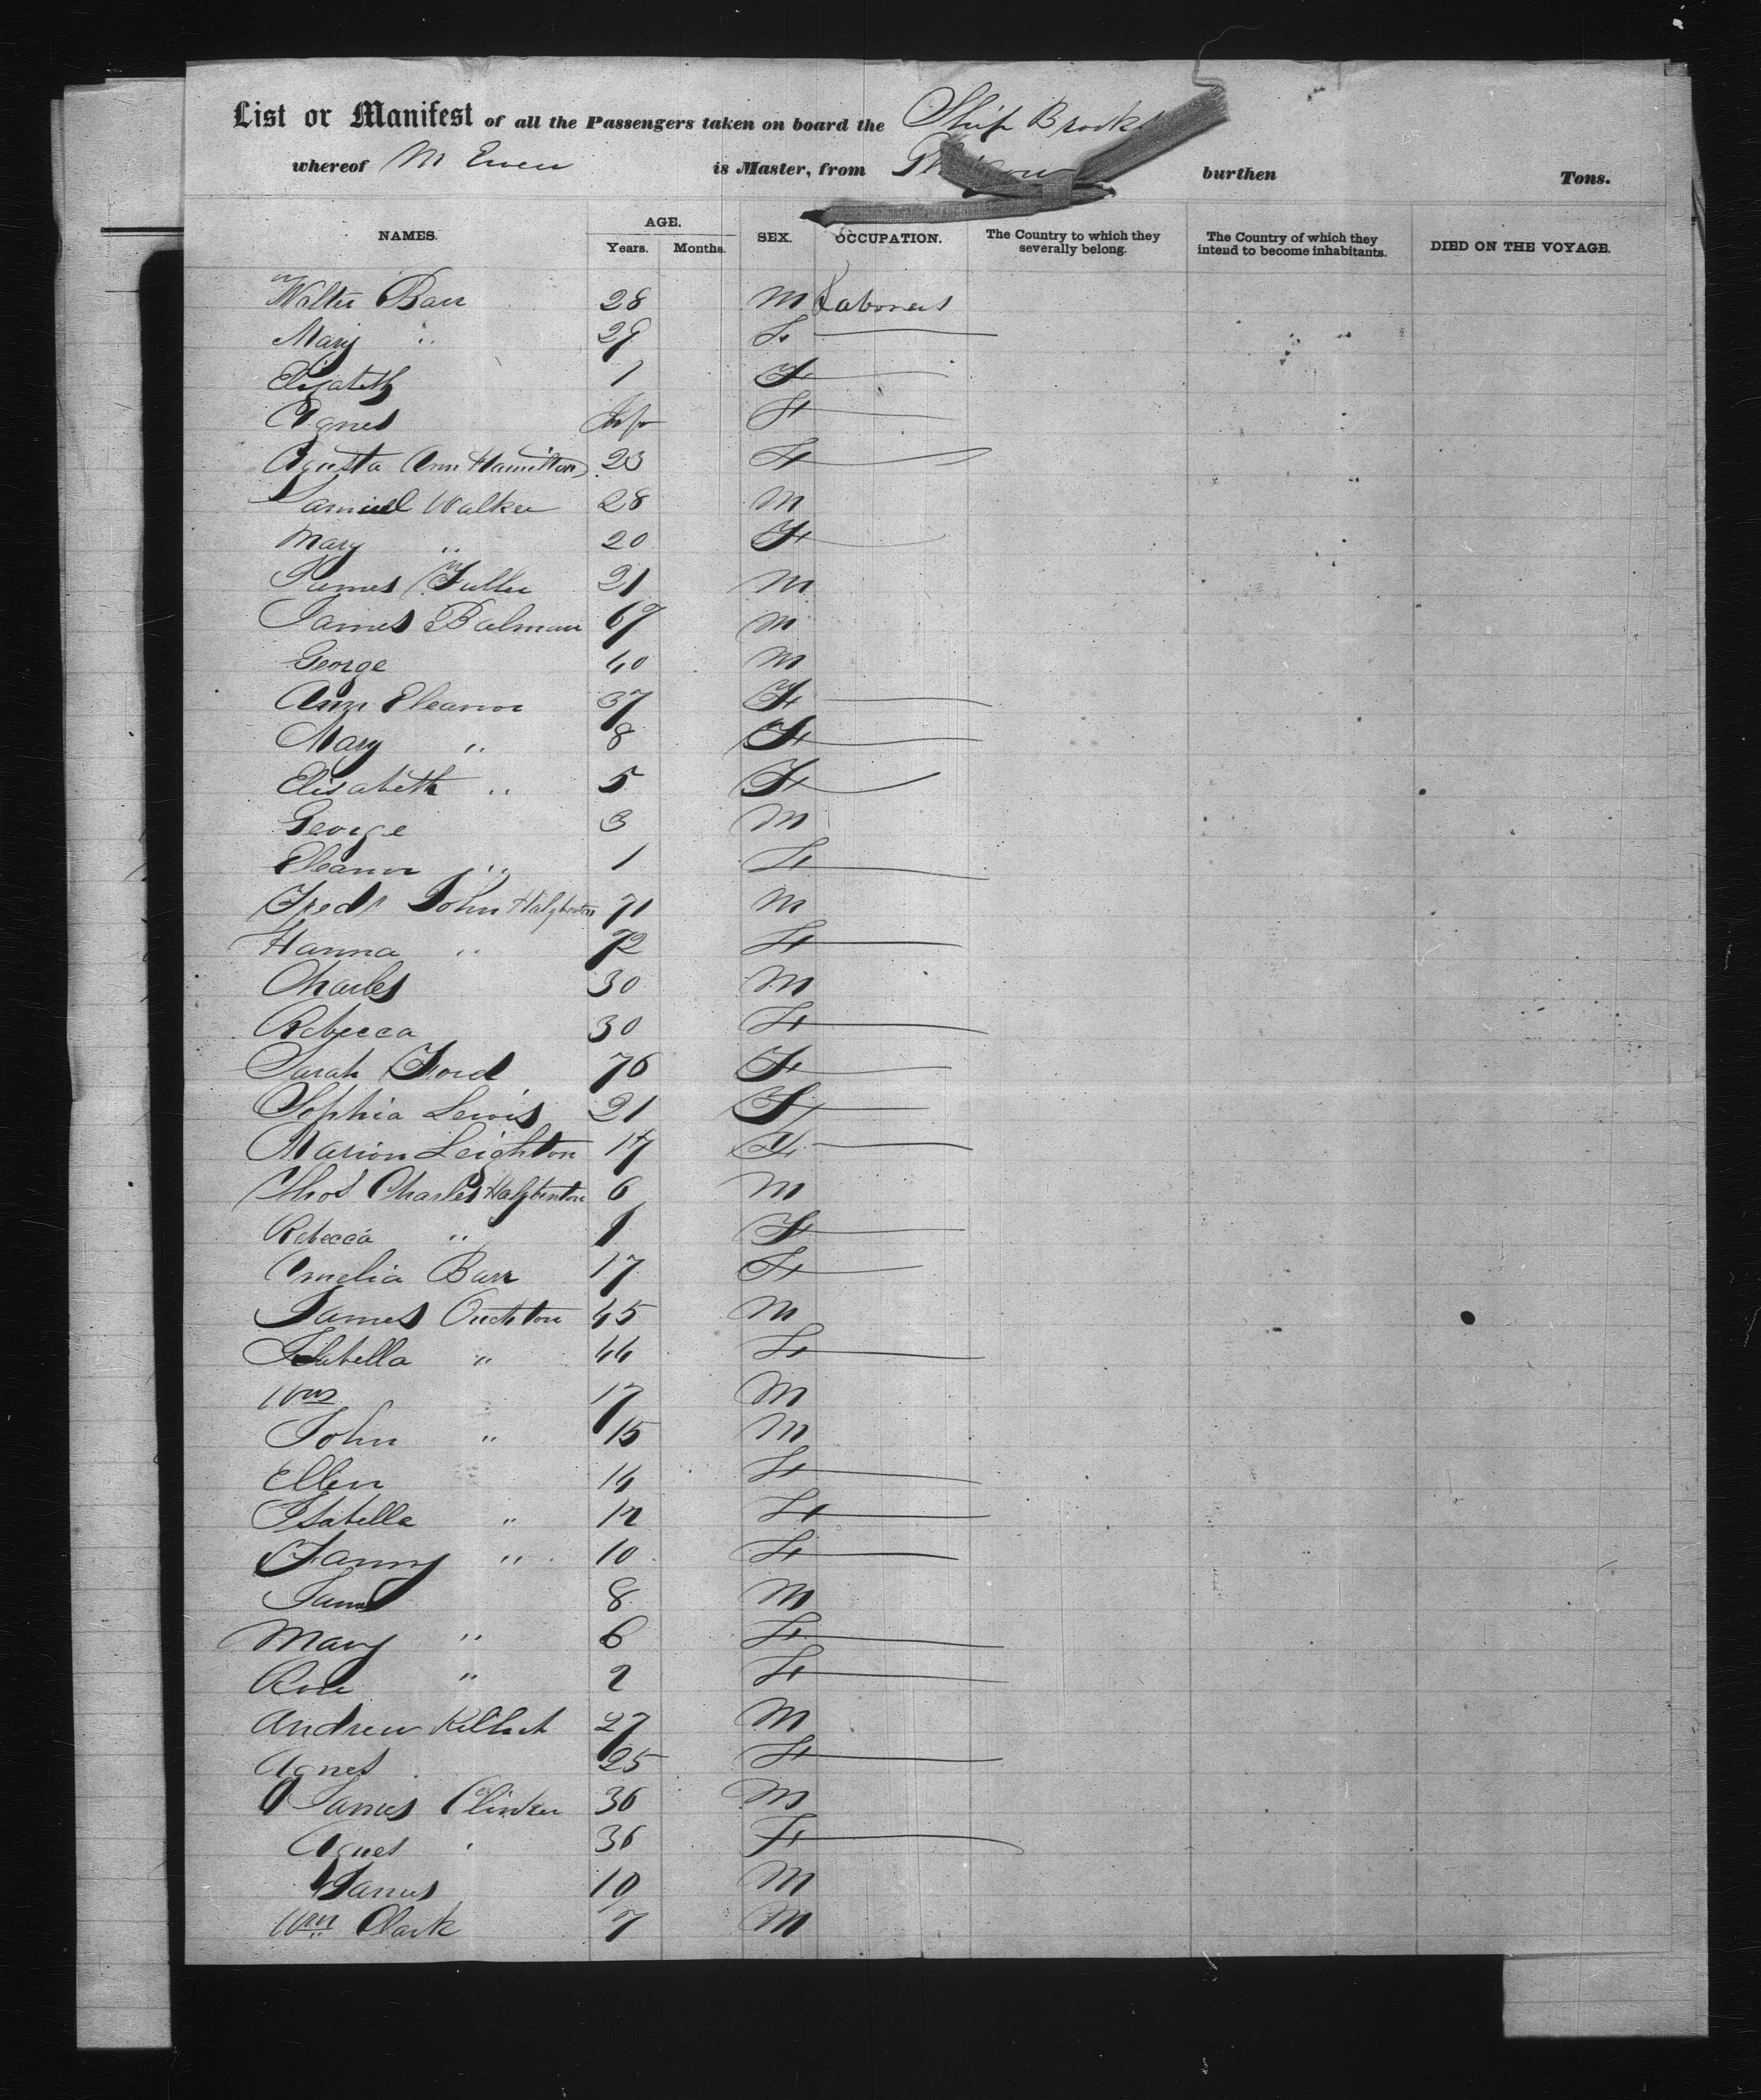 List or Manifest of all the Passengers taken on board the Ship Brooks
whereof M Ewen is Master, from burthen Tons.
NAMES. AGE. Years. Months. SEX. OCCUPATION. The Country to which they severally belong. The Country of which they intend to become inhabitants. DIED ON THE VOYAGE.
Walter Barr 28 M Laborers
Mary " 29 F
Elizabeth 1 F
Agnes Inft F
Agusta Ann Hamilton 23 F
Samuel Walker 28 M
Mary " 20 F
James Fuller 21 M
James Balman 67 M
George 40 M
Ann Eleanor 37 F
Mary " 8 F
Elisabeth " 5 F
George 3 M
Eleanor " 1 F
Fredk John 71 M
Hanna " 72 F
Charles 30 M
Rebecca 30 F
Sarah Ford 76 F
Sophia Lewis 21 F
Marion Leighton 17 F
Thos Charles 6 M
Rebecca " 1 F
Amelia Barr 17 F
James 45 M
Isabella " 44 F
Wm 17 M
John " 15 M
Ellen 14 F
Isabella " 12 F
Fanny " 10 F
James 8 M
Mary " 6 F
Rose " 2 F
Andrew 27 M
Agnes 25 F
James Clinker 36 M
Agnes " 36 F
James 10 M
Wm Clark 7 M